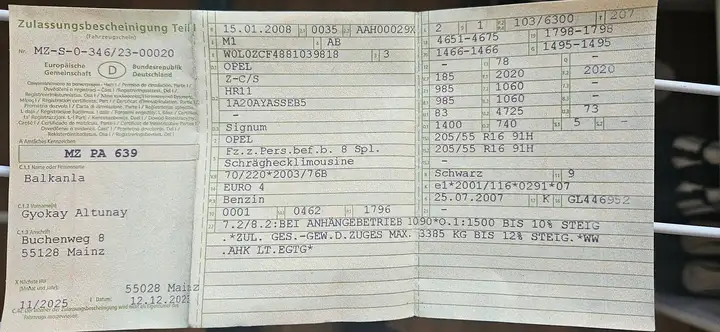 Zulassungsbescheinigung Teil I
(Fahrzeugschein)
Nr. MZ-S-0-346/23-00020
Europäische Gemeinschaft
D
Bundesrepublik Deutschland
MZ PA 639
C.1.1 Name oder Firmenname
Balkanla
C.1.2 Vorname(n)
Gyokay Altunay
C.1.3 Anschrift
Buchenweg 8
55128 Mainz
Nächste HU
(Monat und Jahr)
55028 Mainz
11/2025
Datum:
15.01.2008 0035 AAH00029X
M1 AB
W0L0ZCF4881039818 3
OPEL
Z-C/S
HR11
1A20AYASSEB5
-
Signum
OPEL
Fz.z.Pers.bef.b. 8 Spl.
Schräghecklimousine
70/220*2003/76B
EURO 4
Benzin
0001 0462 1796
2 1 103/6300 207
4651-4675 1798-1798
1466-1466 1495-1495
- 78 -
185 2020 2020
985 1060 -
985 1060 -
83 4725 73
1400 740 5 -
205/55 R16 91H
205/55 R16 91H
-
-
Schwarz 9
e1*2001/116*0291*07
25.07.2007 K GL446952
-
7.2/8.2:BEI ANHÄNGEBETRIEB 1090*O.1:1500 BIS 10% STEIG
.*ZUL. GES.-GEW.D.ZUGES MAX. 3385 KG BIS 12% STEIG.*WW
.AHK LT.EGTG*